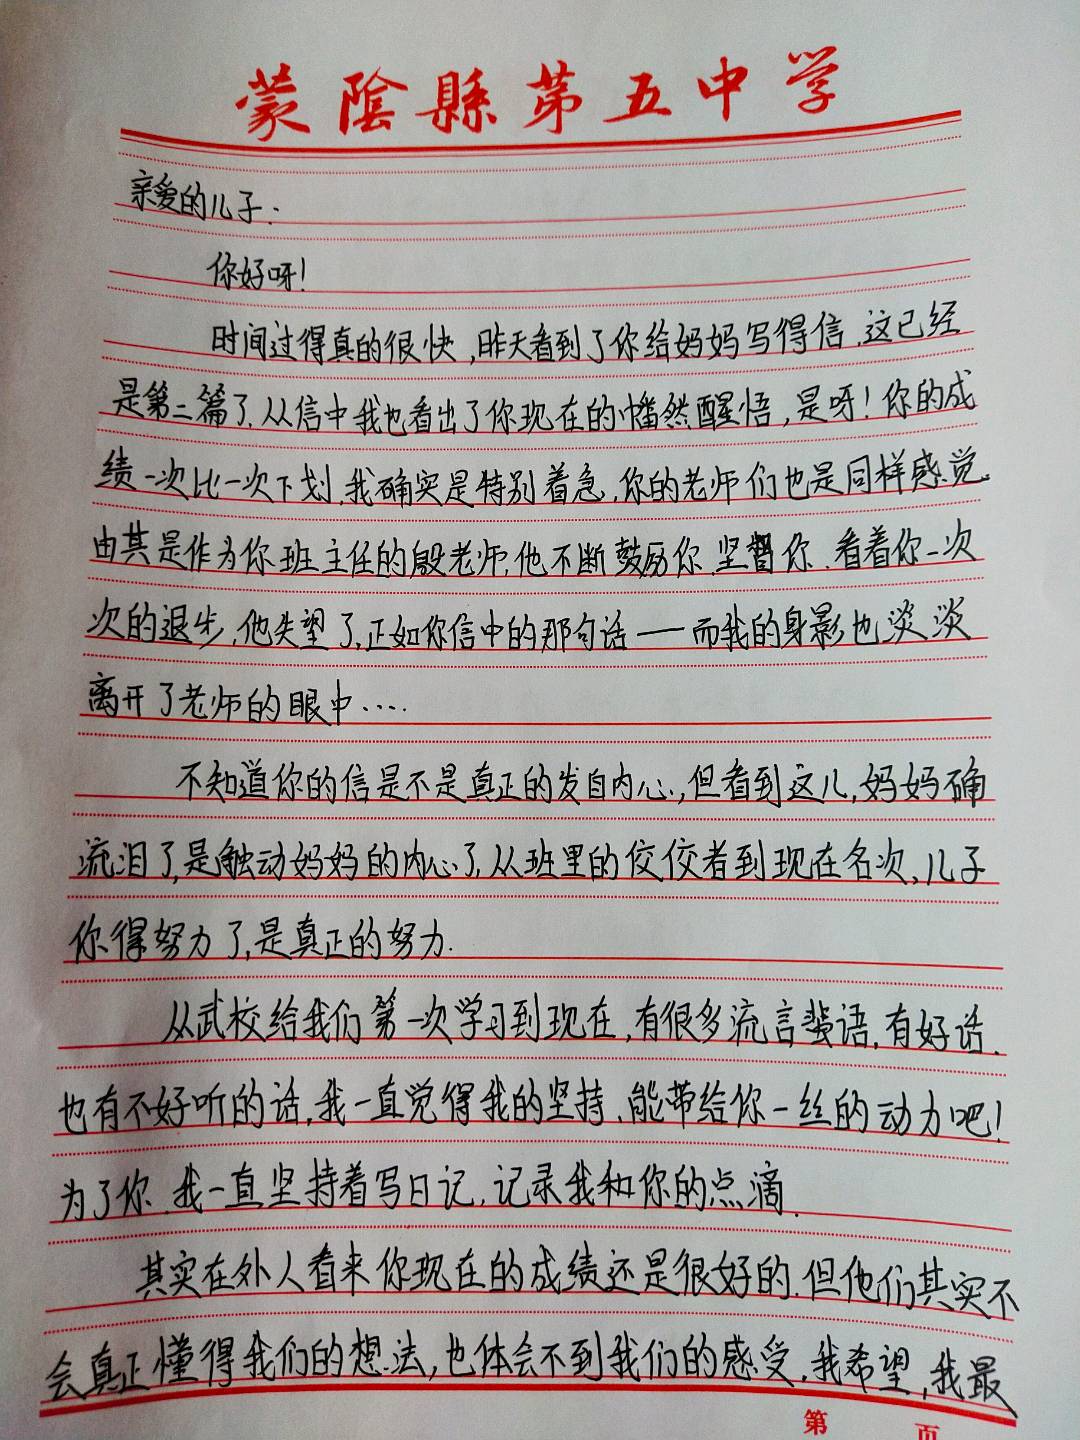 蒙陰縣第五中学
亲爱的儿子:
你好呀!
时间过得真的很快,昨天看到了你给妈妈写得信,这已经
是第二篇了.从信中我也看出了你现在的幡然醒悟,是呀!你的成
绩一次比一次下划,我确实是特别着急,你的老师们也是同样感觉.
由其是作为你班主任的殷老师,他不断鼓励你.坚督你.看着你一次
次的退步,他失望了,正如你信中的那句话——而我的身影也淡淡
离开了老师的眼中....
不知道你的信是不是真正的发自内心,但看到这儿,妈妈确
流泪了,是触动妈妈的内心了,从班里的佼佼者到现在名次,儿子
你得努力了,是真正的努力.
从武校给我们第一次学习到现在,有很多流言蜚语,有好话.
也有不好听的话,我一直觉得我的坚持.能带给你一丝的动力吧!
为了你.我一直坚持着写日记,记录我和你的点滴.
其实在外人看来你现在的成绩还是很好的.但他们其实不
会真正懂得我们的想法,也体会不到我们的感受.我希望,我最
第 页